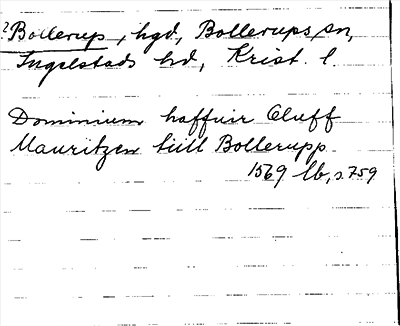 ? Bollerup, hgd, Bollerups sn,
Ingelstads hd, Krist. l.
Dominium haffuir Oluff
Mauritzen till Bollerupp.
1569 lb, s 759